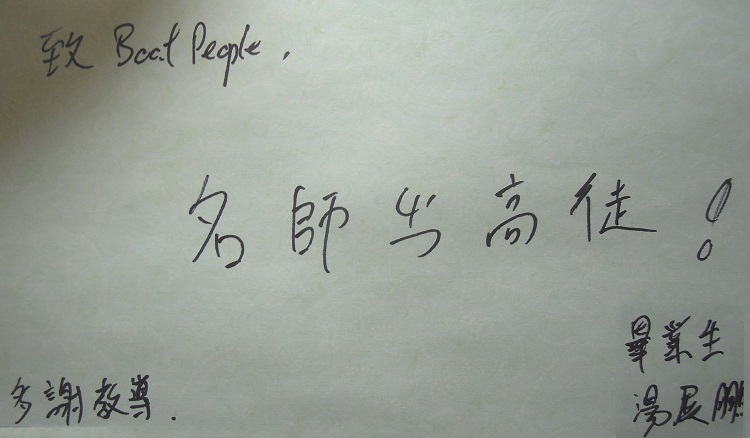 致 Boat People,
名師出高徒!
畢業生
多謝教導.
湯展鵬